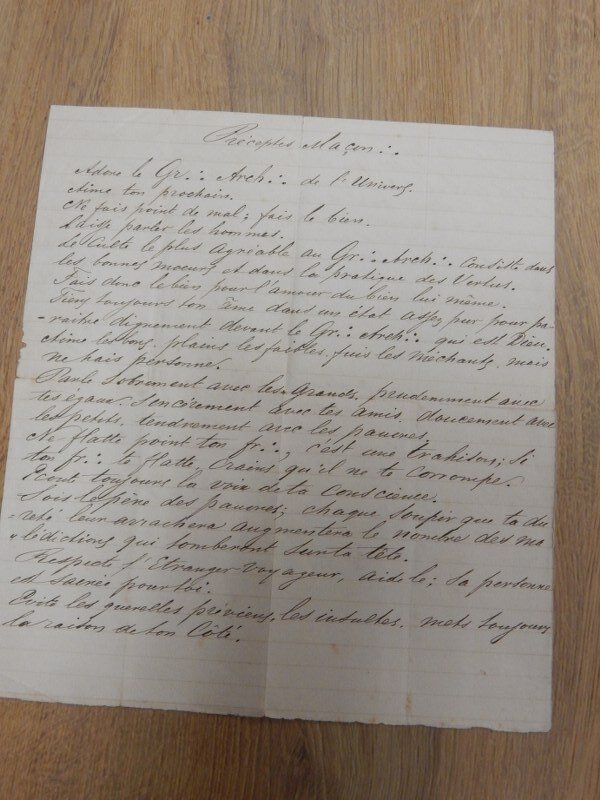 Préceptes Maçon∴
Adore le Gr∴ Arch∴ de l'Univers.
Aime ton prochain.
Ne fais point de mal; fais le bien.
Laisse parler les hommes.
Le Culte le plus agréable au Gr∴ Arch∴ consiste dans
les bonnes moeurs et dans la pratique des Vertus.
Fais donc le bien pour l'amour du bien lui même.
Tiens toujours ton âme dans un état assez pur pour pa-
-raitre dignement devant le Gr∴ Arch∴ qui est Dieu.
Aime les bons, plains les faibles, fuis les méchants, mais
ne hais personne.
Parle sobrement avec les Grands, prudemment avec
tes égaux, sincèrement avec les amis, doucement avec
les petits, tendrement avec les pauvres.
Ne flatte point ton fr∴, c'est une trahison; Si
ton fr∴ te flatte, crains qu'il ne te corrompe.
Ecoute toujours la voix de ta conscience.
Sois le père des pauvres; chaque soupir que ta du
-reté leur arrachera augmentera le nombre des ma
-lédictions qui tomberont sur ta tête.
Respecte l'Etranger voyageur, aide le; sa personne
est sacrée pour toi.
Evite les querelles, préviens les insultes, mets toujours
la raison de ton Côté.